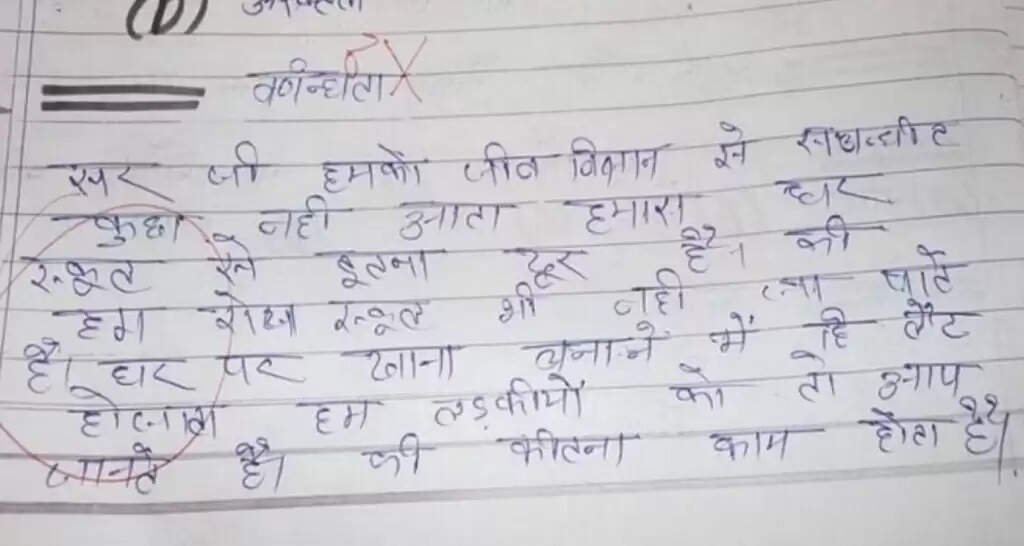 (D)
वर्णन्धीता
सर जी हमको जीव विज्ञान से सम्बन्धीत
कुछा नही आता हमारा घर
स्कूल से इतना दूर है। की
हम रोज स्कूल भी नही जा पाते
है। घर पर खाना बनाने में हि लेट
होजाता हम लड़कीयों को तो आप
जानते है। की कीतना काम होता है।